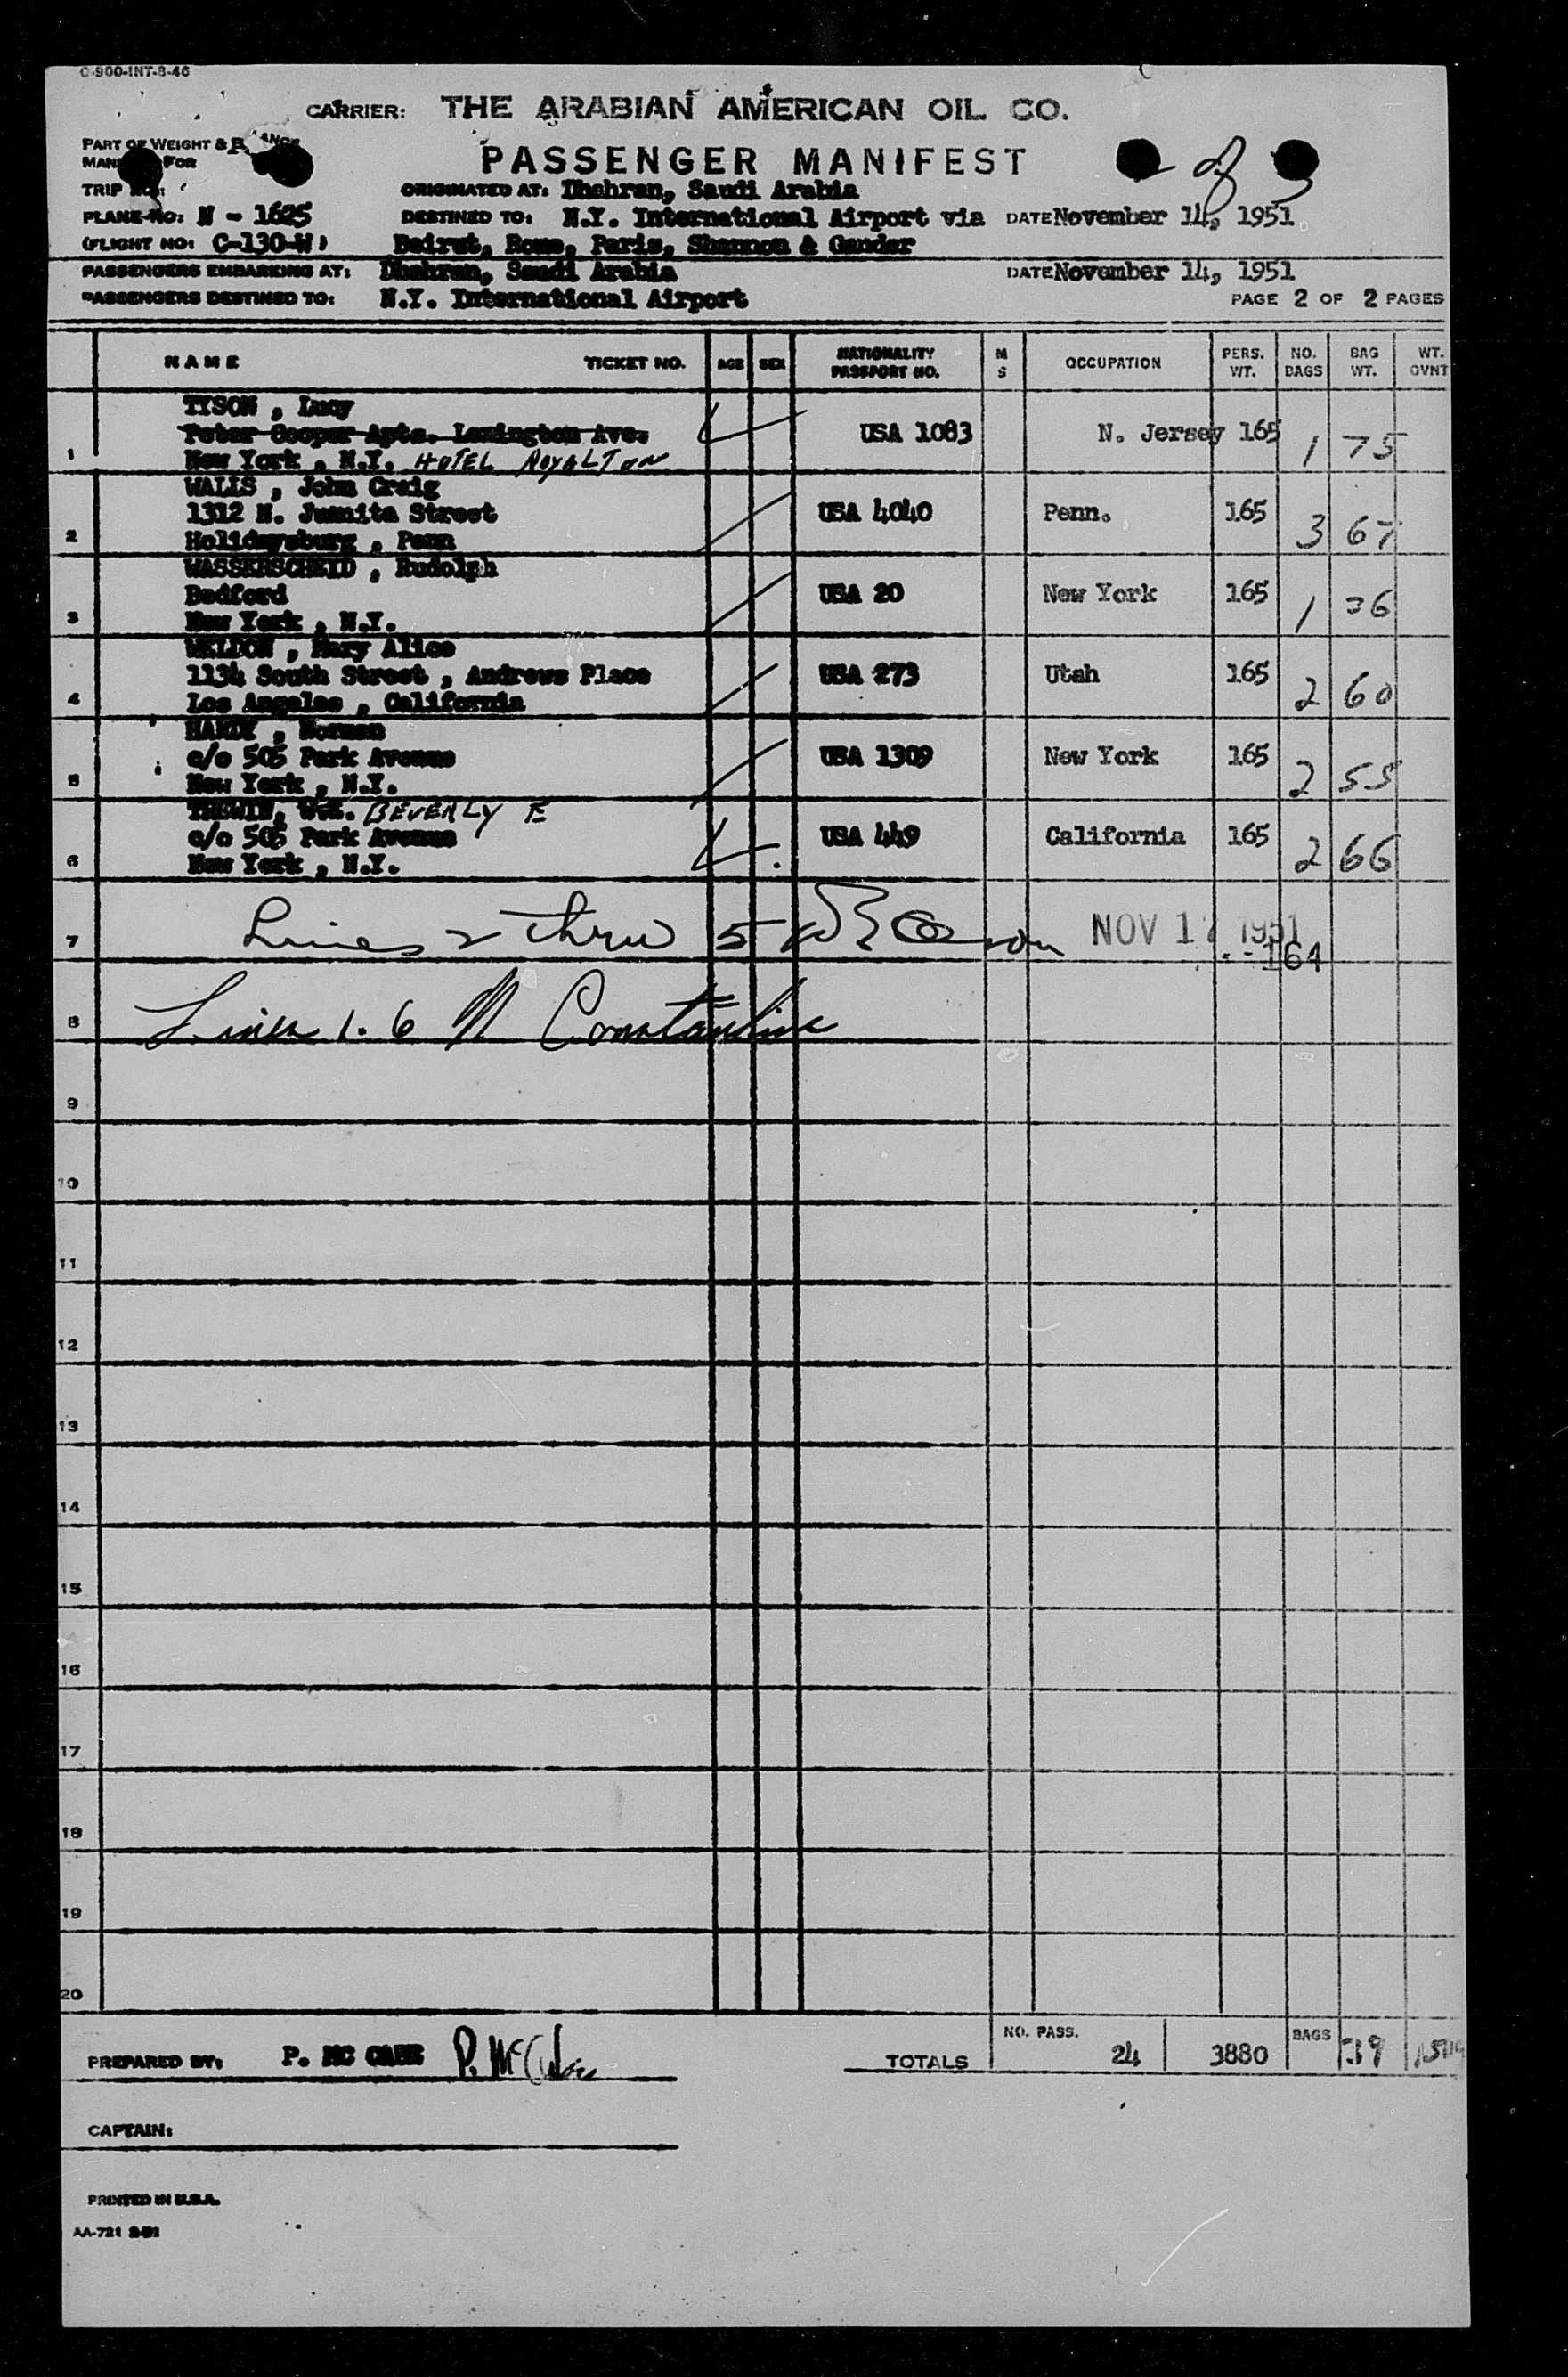 C-900-INT-8-46
CARRIER: THE ARABIAN AMERICAN OIL CO.
PART OF WEIGHT &
FOR
PASSENGER MANIFEST
of
TRIP
ORIGINATED AT: Dhahran, Saudi Arabia
PLANE NO: N - 1625 DESTINED TO: N.Y. International Airport via DATE November 14, 1951
(FLIGHT NO: C-130-W) Beirut, Rome, Paris, Shannon & Gander
PASSENGERS EMBARKING AT: Dhahran, Saudi Arabia DATE November 14, 1951
PASSENGERS DESTINED TO: N.Y. International Airport PAGE 2 OF 2 PAGES
NAME TICKET NO. AGE SEX NATIONALITY PASSPORT NO. M S OCCUPATION PERS. WT. NO. BAGS BAG WT. WT. OVNT
TYSON , Lucy
Peter Cooper Apts. Lexington Ave. USA 1083 N. Jersey 165
1 New York , N.Y. HOTEL ROYALTON 1 75
WALLS , John Craig
1312 N. Juanita Street USA 4040 Penn. 165
2 Holidaysburg , Penn 3 67
WASSERSCHEID , Rudolph
Bedford USA 20 New York 165
3 New York , N.Y. 1 36
WELDON , Mary Alice
1134 South Street , Andrews Place USA 273 Utah 165
4 Los Angeles , California 2 60
HARDY , Norman
c/o 505 Park Avenue USA 1309 New York 165
5 New York , N.Y. 2 55
BEVERLY E
c/o 505 Park Avenue USA 449 California 165
6 New York , N.Y. 2 66
7 Lines 2 thru 5 NOV 17 1951
164
8 Lines 1. 6 N Constantine
9
10
11
12
13
14
15
16
17
18
19
20
PREPARED BY: P. MC CABE P. McCabe TOTALS NO. PASS. 24 3880 BAGS 39
CAPTAIN:
PRINTED IN U.S.A.
AA-721